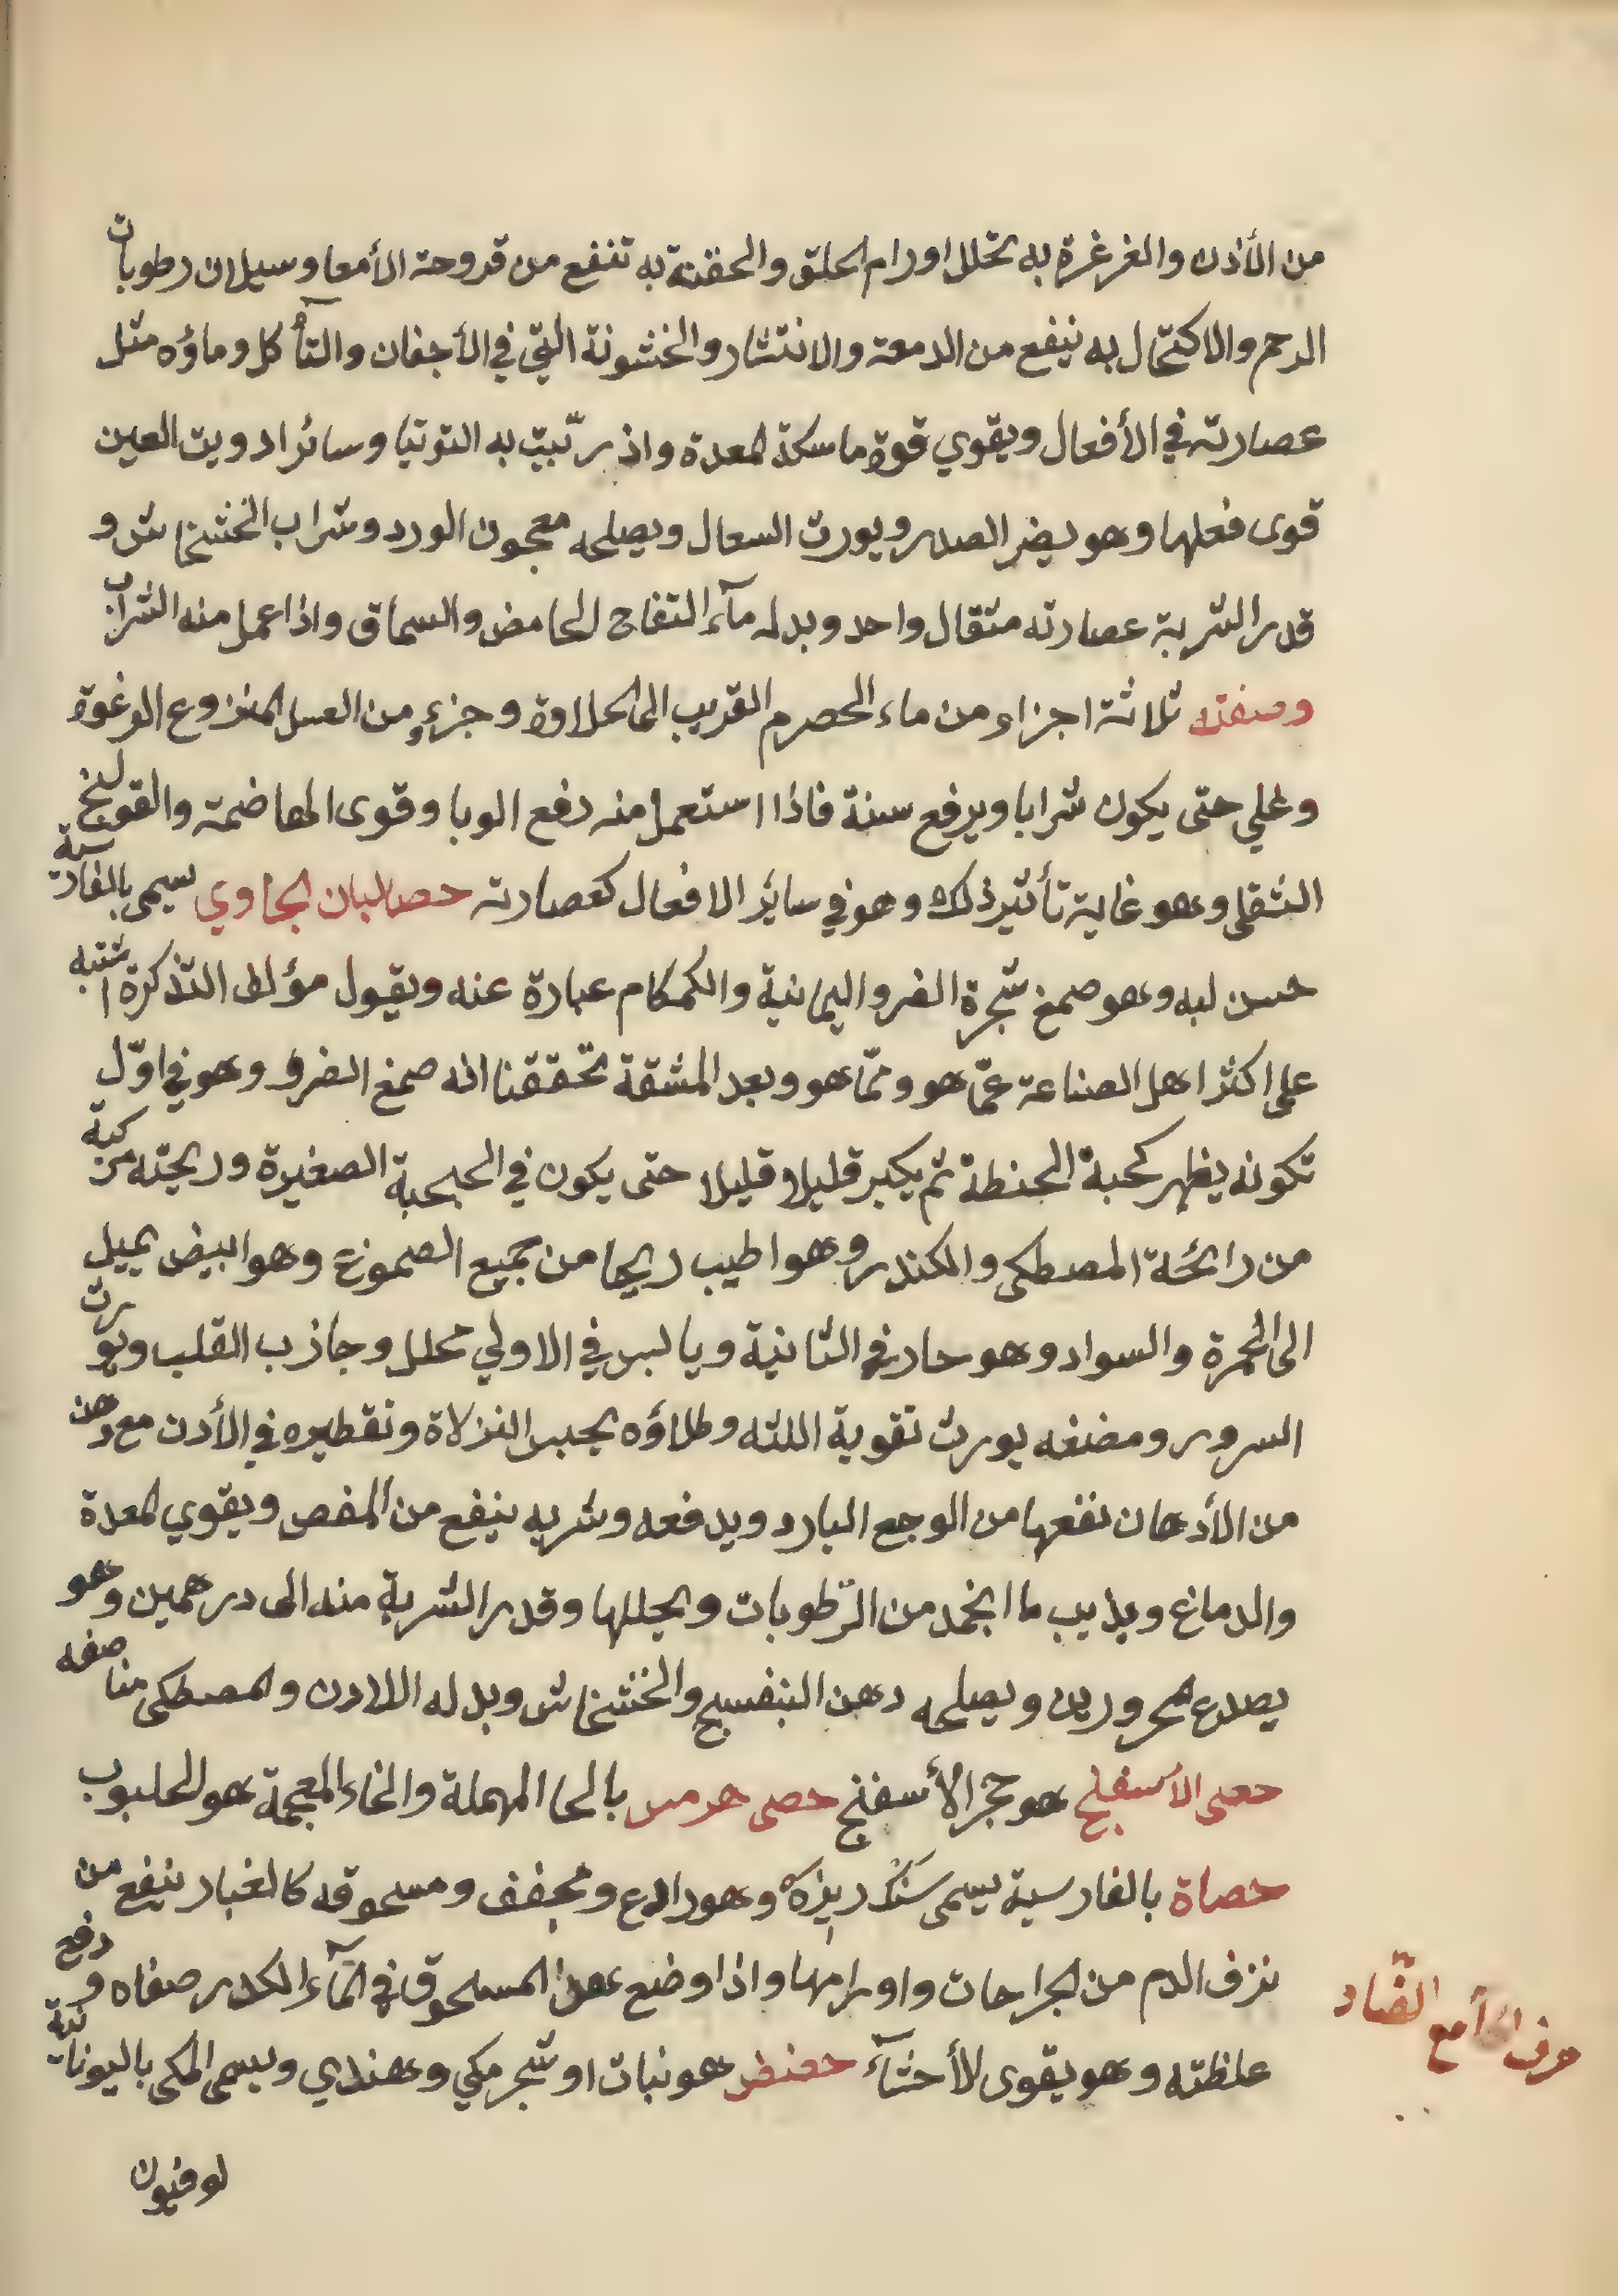 من الأذن والغرغرة به تحلل اورام الحلق والحقنة به تنفع من قروحة الأمعا وسيلان رطوبات
الرحم والاكتحال به ينفع من الدمعة والانتشار والخشونة التي في الأجفان والتآكل وماؤه مثل
عصارته في الأفعال ويقوي قوة ماسكة المعدة واذ رتبيت به التوتيا وسائر ادويت العين
قوى فعلها وهو يضر الصدر ويورث السعال ويصلحه معجون الورد وشراب الخشخاش و
قدر الشربة عصارته مثقال واحد وبدله مآء التفاح الحامض والسماق واذا عمل منه الشراب
وصفته ثلاثة اجزاء من ماء الحصرم القريب الى الحلاوة وجزءٍ من العسل المنزوع الرغوة
وغلي حتى يكون شرابا ويرفع سنة فاذا استعمل منه دفع الوبا وقوى الهاضمة والقولنج
الثقلي وهو غاية تأثير ذلك وهو في سائر الافعال كعصارته حصالبان الجاوي يسمى بالفارسية
حسن لبه وهو صمغ شجرة الضرو اليمانية والكمكام عبارة عنه ويقول مؤلف التذكرة اشتبه
على اكثر اهل الصناعة عمّا هو وممّا هو وبعد المشقة تحققنا انه صمغ الضرو وهو في اوّل
تكونه يظهر كحبة الحنطة ثم يكبر قليلا قليلا حتى يكون في الحبحبة الصغيرة وريحته مركبة
من رائحة المصطكى والكندر وهو اطيب ريحا من جميع الصموغ وهو ابيض يميل
الى الحمرة والسواد وهو حار في الثانية ويابس في الاولي محلل وجاذب القلب ويورث
السرور ومضغه يورث تقوية اللثه وطلاؤه يحبس النزلاة وتقطيره في الأذن مع دهن
من الأدهان نفعها من الوجع البارد ويدفعه وشربه ينفع من المغص ويقوي المعدة
والدماغ ويذيب ما انجمد من الرّطوبات ويحللها وقدر الشربة منه الى درهمين وهو
يصدع محرورين ويصلحه دهن البنفسج والخشخاش وبدله اللادن والمصطكى مناصفه
حصى الأسفنج هو حجر الأسفنج حصى هرمس بالحا المهملة والخاء المعجمة هو الحلبوب
حصاة بالفارسية يسمى سنكريزه وهو رادع ومجفف ومسحوقه كالغبار ينفع من
نزف الدم من الجراحات واورامها واذا وضع هذا المسحوق في المآء الكدر صفاه ودفع
علظته وهو يقوى الأحشآء حضض هو نبات او شجر مكي وهندي ويسمى المكى باليونانية
لوفيون
حرف الحآء مع الضّاد